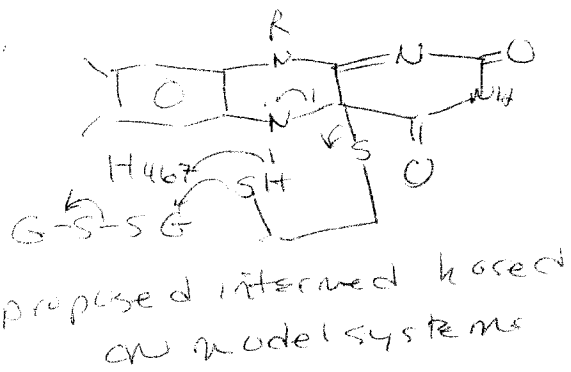 R
N N O
N NH
H S
H467 SH O
G-S-S G
proposed intermed based
on model systems